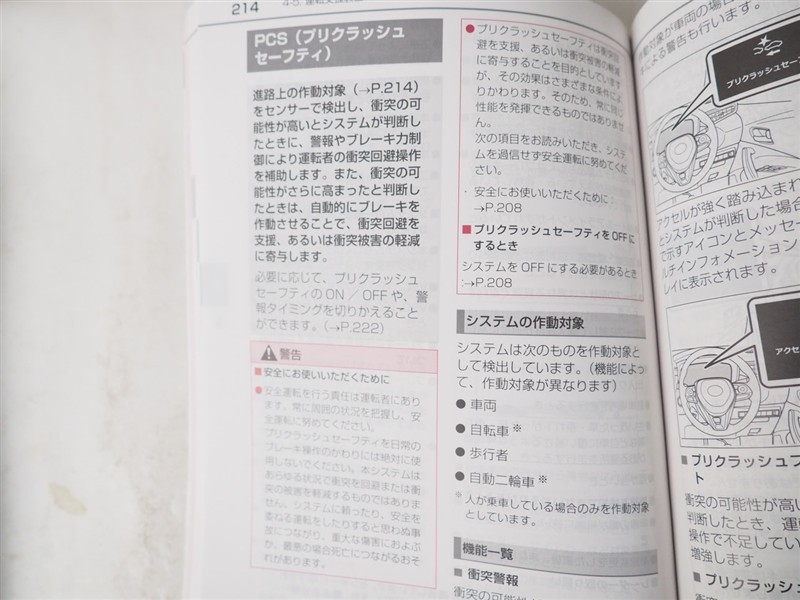 214
4-5.
PCS（プリクラッシュ
セーフティ）
進路上の作動対象（→P.214）
をセンサーで検出し、衝突の可
能性が高いとシステムが判断し
たときに、警報やブレーキ力制
御により運転者の衝突回避操作
を補助します。また、衝突の可
能性がさらに高まったと判断し
たときは、自動的にブレーキを
作動させることで、衝突回避を
支援、あるいは衝突被害の軽減
に寄与します。
必要に応じて、プリクラッシュ
セーフティの ON ／ OFF や、警
報タイミングを切りかえること
ができます。（→P.222）
警告
■ 安全にお使いいただくために
● 安全運転を行う責任は運転者にあり
ます。常に周囲の状況を把握し、安
全運転に努めてください。
プリクラッシュセーフティを日常の
ブレーキ操作のかわりには絶対に使
用しないでください。本システムは
あらゆる状況で衝突を回避または衝
突の被害を軽減するものではありま
せん。システムに頼ったり、安全を
委ねる運転をしたりすると思わぬ事
故につながり、重大な傷害におよぶ
か、最悪の場合死亡につながるおそ
れがあります。
● プリクラッシュセーフティは衝突回
避を支援、あるいは衝突被害の軽減
に寄与することを目的としています
が、その効果はさまざまな条件によ
りかわります。そのため、常に同じ
性能を発揮できるものではありませ
ん。
次の項目をお読みいただき、システ
ムを過信せず安全運転に努めてくだ
さい。
・ 安全にお使いいただくために：
→P.208
■ プリクラッシュセーフティを OFF に
するとき
システムを OFF にする必要があるとき
:→P.208
システムの作動対象
システムは次のものを作動対象と
して検出しています。（機能によっ
て、作動対象が異なります）
● 車両
● 自転車※
● 歩行者
● 自動二輪車※
※ 人が乗車している場合のみを作動対象
としています。
機能一覧
■ 衝突警報
作動対象が車両の場合
による警告も行います。
プリクラッシュセーフ
アクセルが強く踏み込まれ
とシステムが判断した場合
で示すアイコンとメッセー
ルチインフォメーション
レイに表示されます。
アクセ
■ プリクラッシュブ
ト
衝突の可能性が高い
判断したとき、運
操作で不足してい
増強します。
■ プリクラッシ